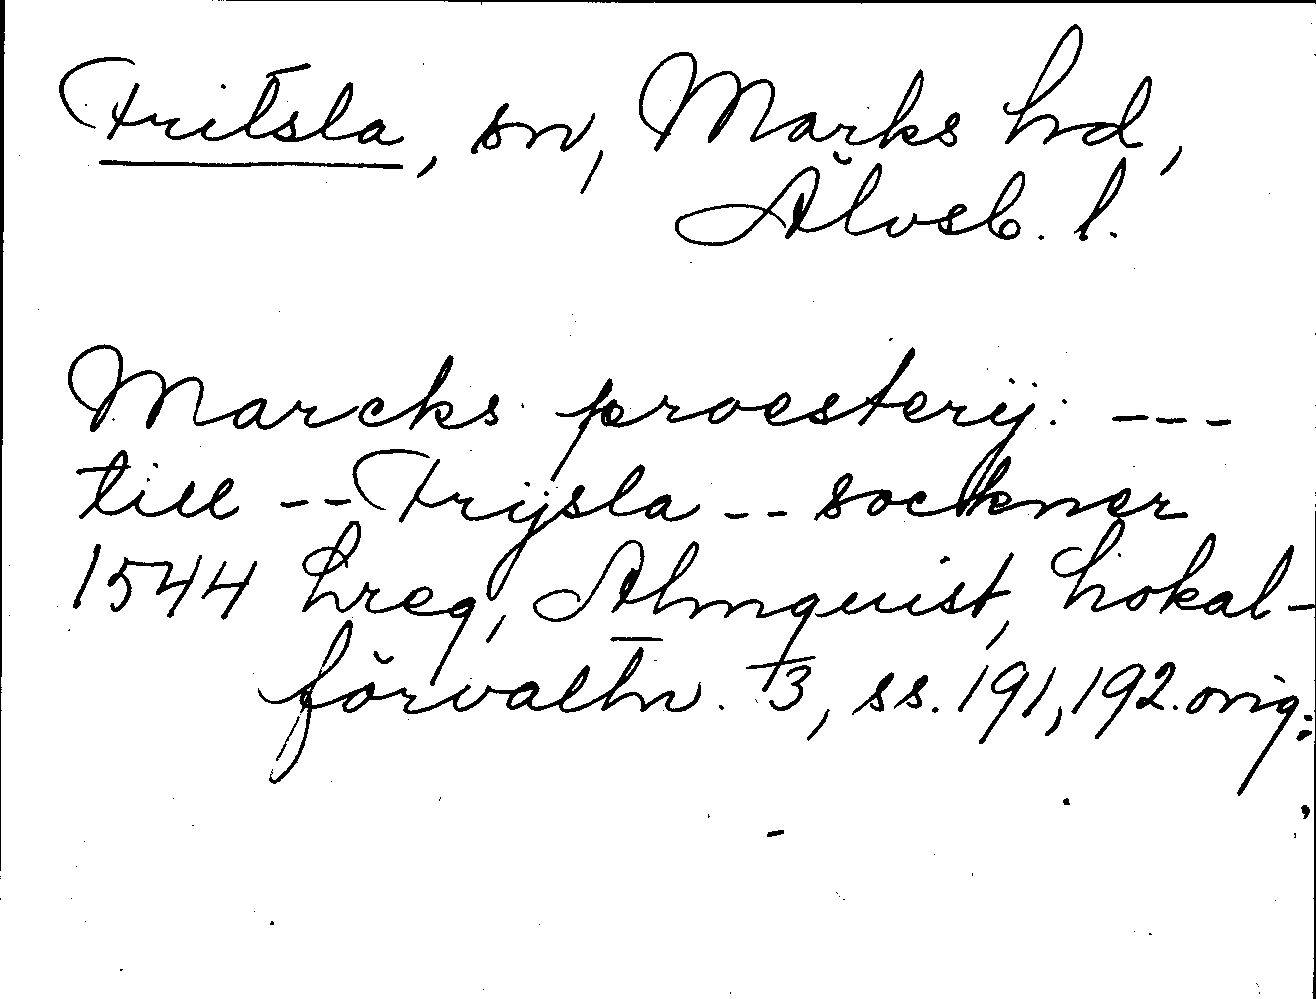 Fritsla, sn, Marks hd,
Älvsb. l.
Marcks proesterij: ---
till -- Frijsla -- sockner
1544 Lreg, Almquist, Lokal-
förvaltn. 3, ss. 191, 192. orig.